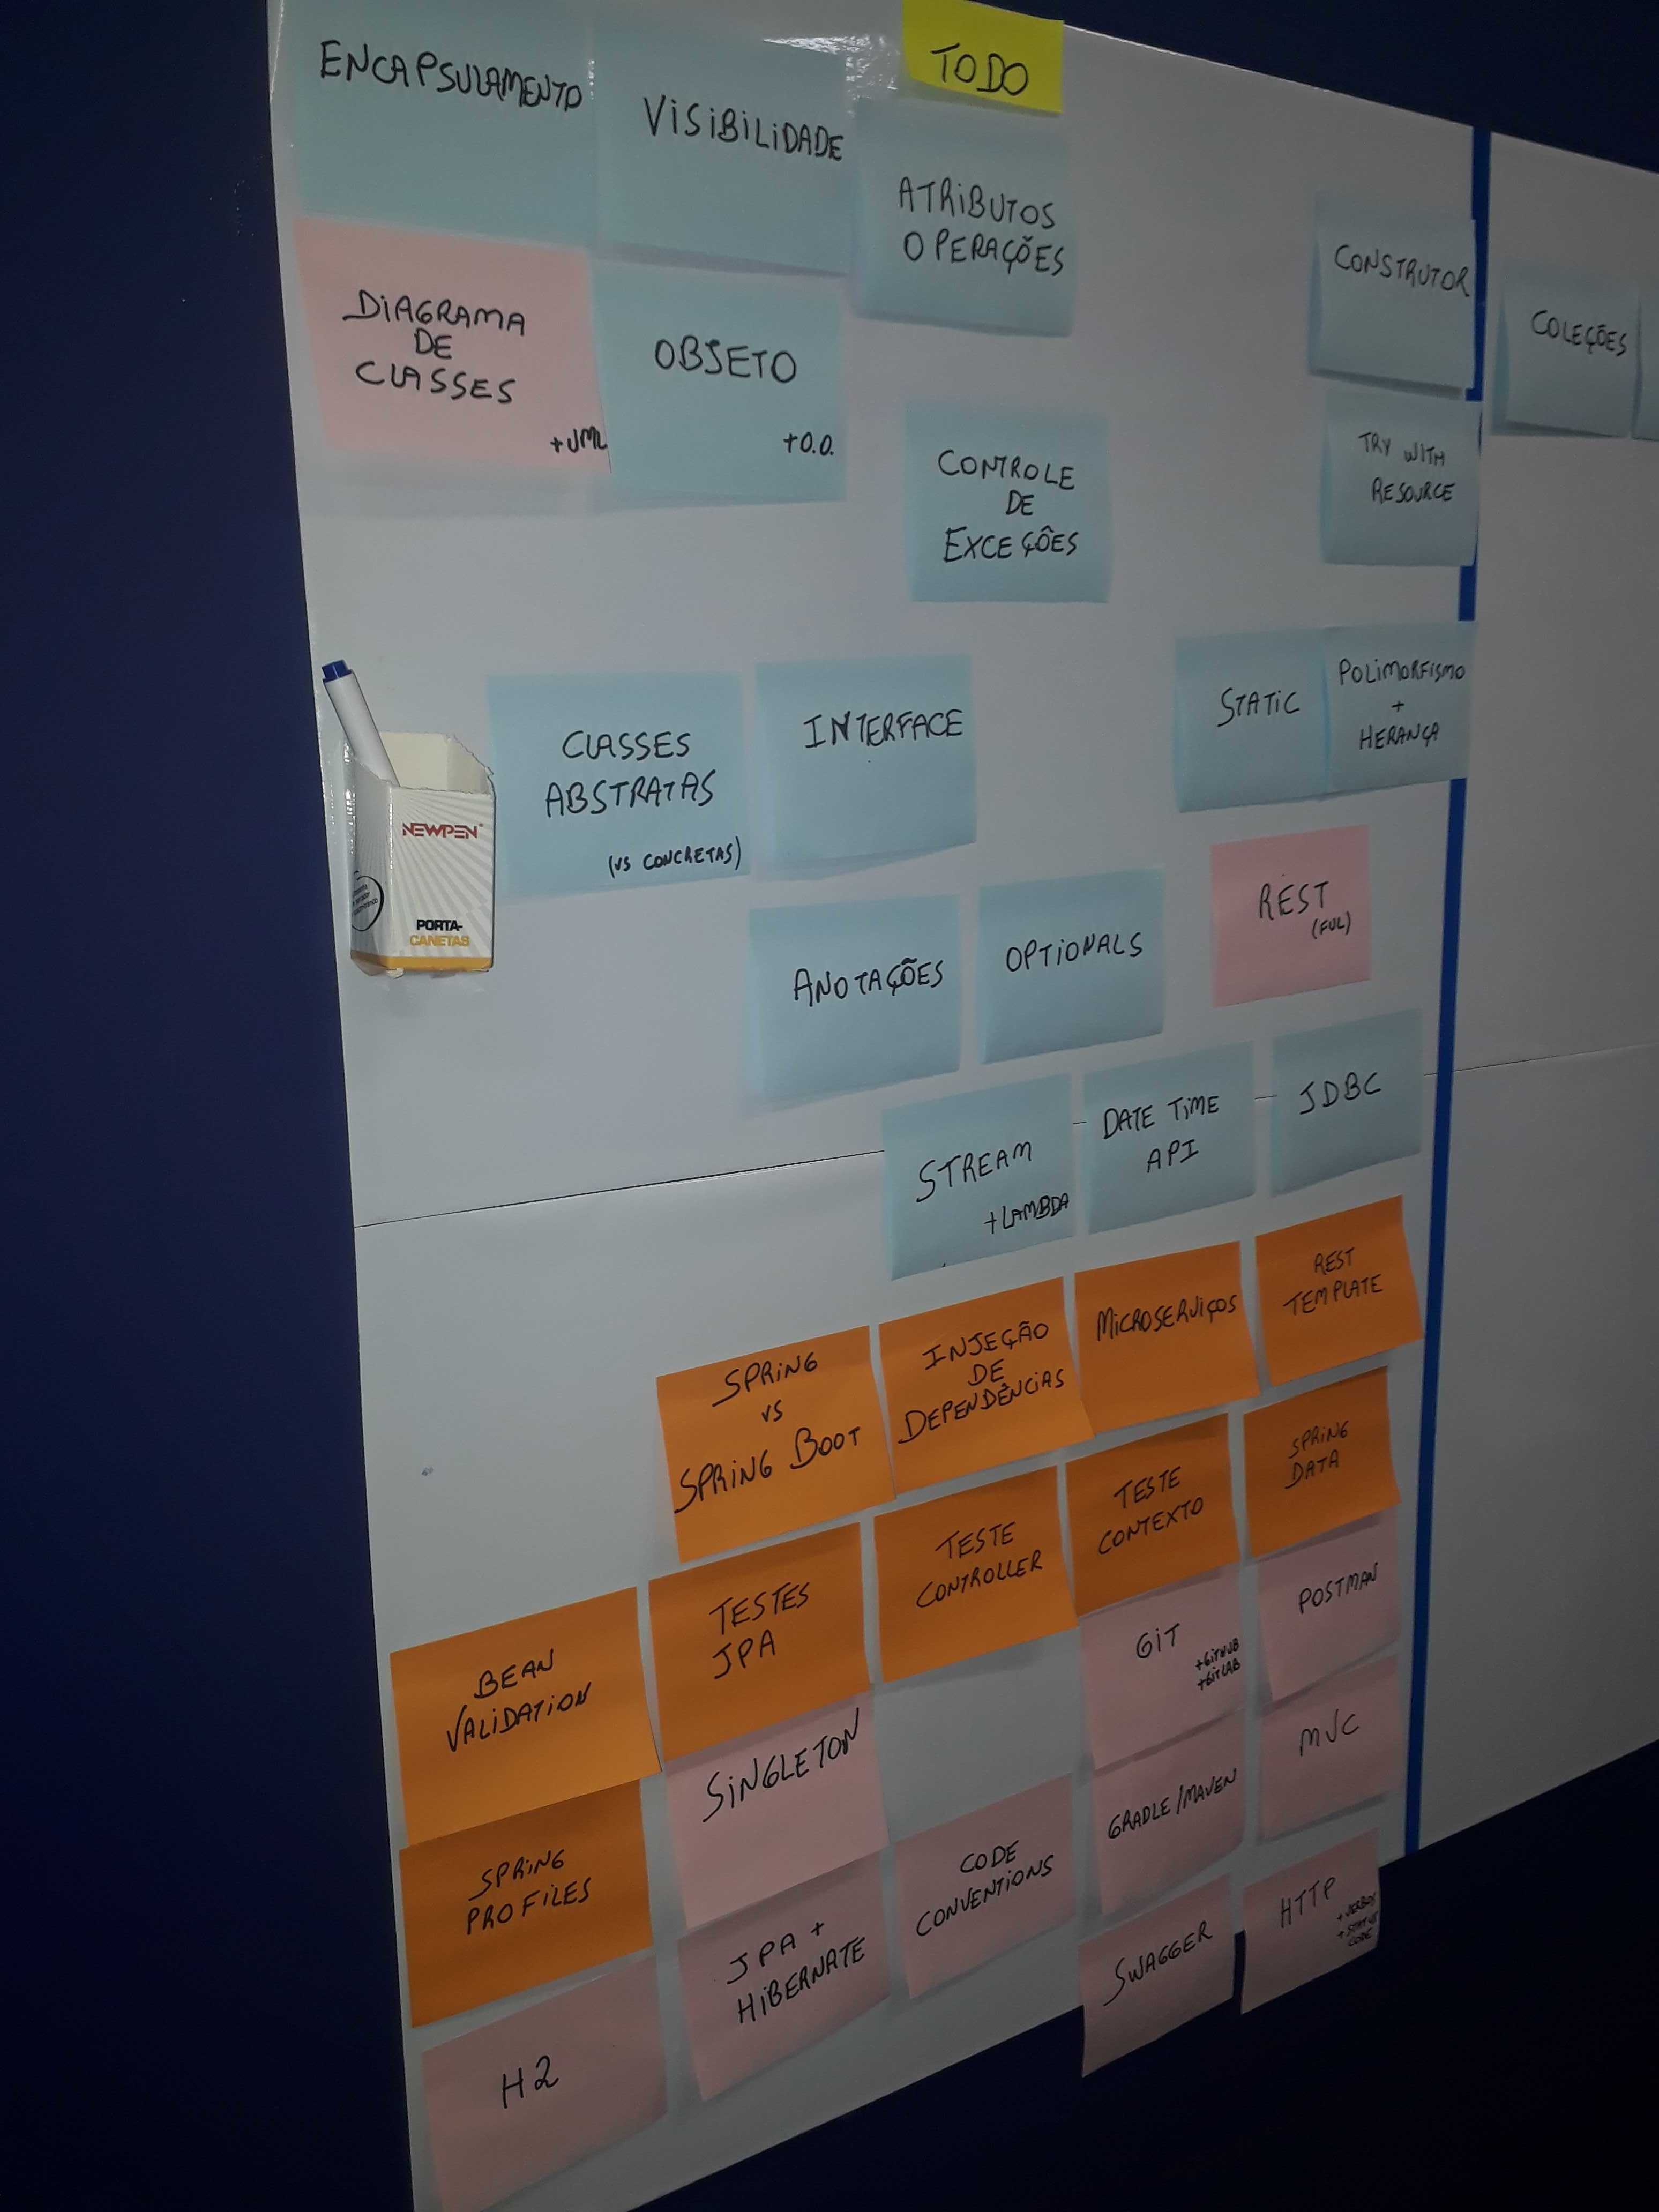 TODO
ENCAPSULAMENTO
VISIBILIDADE
ATRIBUTOS
OPERAÇÕES
CONSTRUTOR
COLEÇÕES
DIAGRAMA
DE
CLASSES
+UML
OBJETO
+O.O.
CONTROLE
DE
EXCEÇÕES
TRY WITH
RESOURCE
CLASSES
ABSTRATAS
(VS CONCRETAS)
INTERFACE
STATIC
POLIMORFISMO
+
HERANÇA
NEWPEN
PORTA-
CANETAS
ANOTAÇÕES
OPTIONALS
REST
(FUL)
STREAM
+LAMBDA
DATE TIME
API
JDBC
SPRING
VS
SPRING BOOT
INJEÇÃO
DE
DEPENDÊNCIAS
MICROSERVIÇOS
REST
TEMPLATE
BEAN
VALIDATION
TESTES
JPA
TESTE
CONTROLLER
TESTE
CONTEXTO
SPRING
DATA
SPRING
PROFILES
SINGLETON
GIT
+GITHUB
+GITLAB
POSTMAN
H2
JPA +
HIBERNATE
CODE
CONVENTIONS
GRADLE/MAVEN
MVC
SWAGGER
HTTP
+VERBOS
+STATUS
CODE